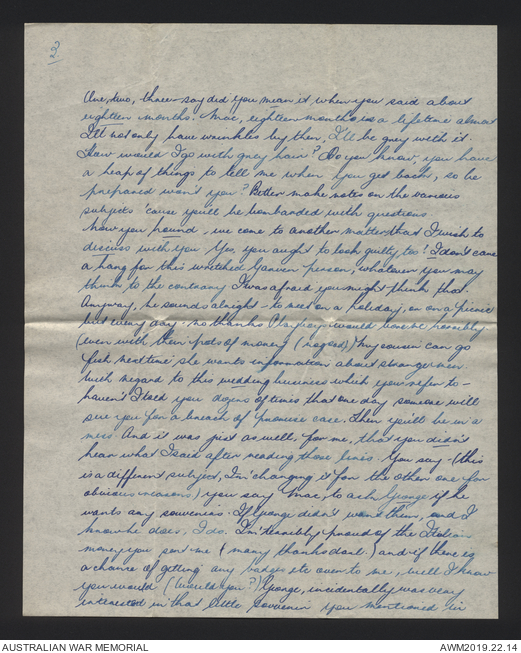 2)
One, two, three - say did you mean it when you said about
eighteen months. Mac, eighteen months is a lifetime almost
I'll not only have wrinkles by then, I'll be gray with it.
How would I go with gray hair? Do you know, you have
a heap of things to tell me when you get back, so be
prepared won't you? Better make notes on the various
subjects 'cause you'll be bombarded with questions
Now you hound, we come to another matter that I wish to
discuss with you. Yes, you ought to look guilty too! I don't care
a hang for this wretched person, whatever you may
think to the contrary I was afraid you might think that.
Anyway, he sounds alright - to meet on a holiday, or on a picnic
but every day: no thanks Playboys would bore me horribly
(even with their pots of money) My cousin can go
fish next time she wants information about strange men.
With regard to this wedding business which you refer to -
haven't I told you dozens of times that one day someone will
sue you for a breach of promise case. Then you'll be in a
mess. And it was just as well, for me, that you didn't
hear what I said after reading those lines. You say - (this
is a different subject, I'm changing it for the other one for
obvious reasons) you say Mac, to ask George if he
wants any souvenirs. If George didn't want them, and I
know he does, I do. I'm terribly proud of the Italian
money you sent me & many thanks darl. and if there is
a chance of getting any badges etc over to me, well I know
you would (Would you?) George, incidentally was very
interested in that little souvenir you mentioned in
AUSTRALIAN WAR MEMORIAL
AWM2019.22.14